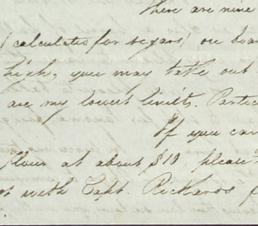 There are nine
(calculated for segars) on boar
high, you may take out
are my lowest limits. Partic
If you can
flour at about $10 please
with Capt. Richards f